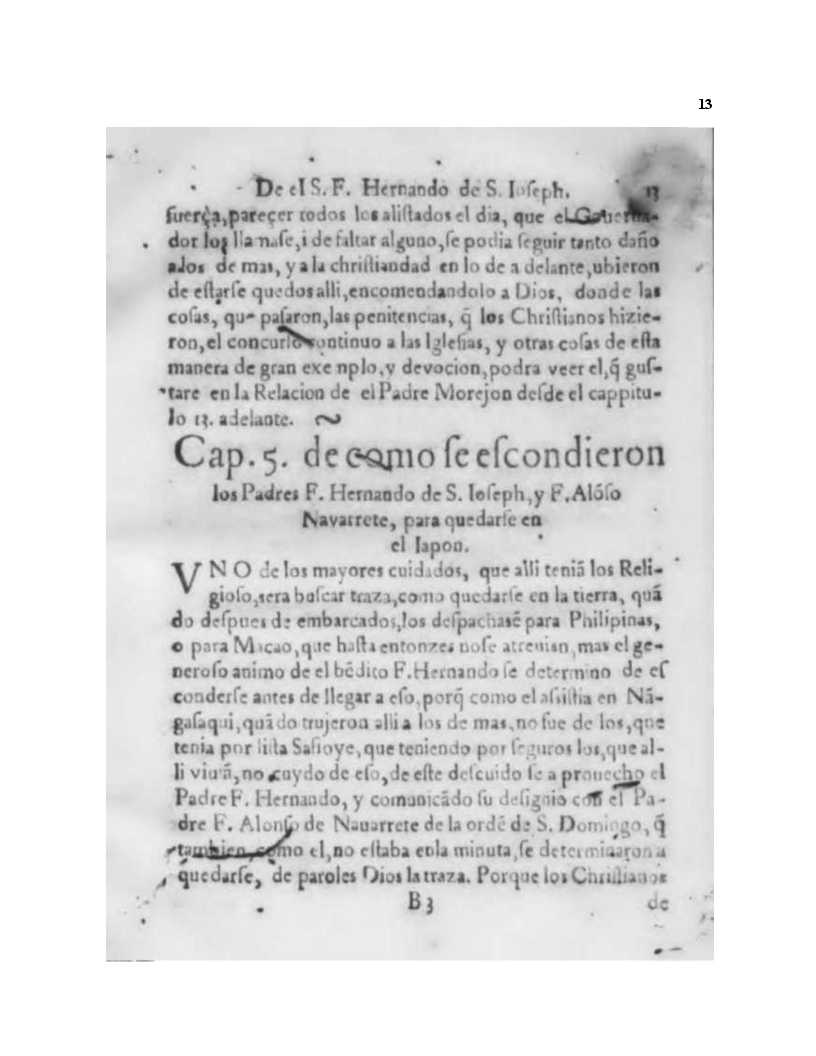 13
De el S. F. Hernando de S. Ioseph. 13
fuerça, pareçer todos los alistados el dia, que el Gouerna-
dor los llamase, i de faltar alguno, se podia seguir tanto daño
alos de mas, y a la christiandad en lo de a delante, ubieron
de estarse quedos alli, encomendandolo a Dios, donde las
cosas, que pasaron, las penitencias, q̃ los Christianos hizie-
ron, el concurso continuo a las Iglesias, y otras cosas de esta
manera de gran exemplo, y devocion, podra veer el, q̃ gus-
tare en la Relacion de el Padre Morejon desde el cappitu-
lo 13. adelante.
Cap. 5. de como se escondieron
los Padres F. Hernando de S. Ioseph, y F. Alõso
Navarrete, para quedarse en
el Iapon.
VNO de los mayores cuidados, que alli teniã los Reli-
gioso, sera buscar traza, como quedarse en la tierra, quã
do despues de embarcados, los despachasẽ para Philipinas,
o para Macao, que hasta entonzes nose atreuian, mas el ge-
neroso animo de el bẽdito F. Hernando se determino de es
conderse antes de llegar a eso, porq̃ como el asistia en Nã-
gasaqui, quãdo trujeron alli a los de mas, no fue de los, que
tenia por lista Safioye, que teniendo por seguros los, que al-
li viuiã, no cuydo de eso, de este descuido se a prouecho el
Padre F. Hernando, y comunicãdo su designio con el Pa-
dre F. Alonso de Nauarrete de la ordẽ de S. Domingo, q̃
tambien como el, no estaba enla minuta, se determinaron a
quedarse, de paroles Dios la traza. Porque los Christianos
B3 de